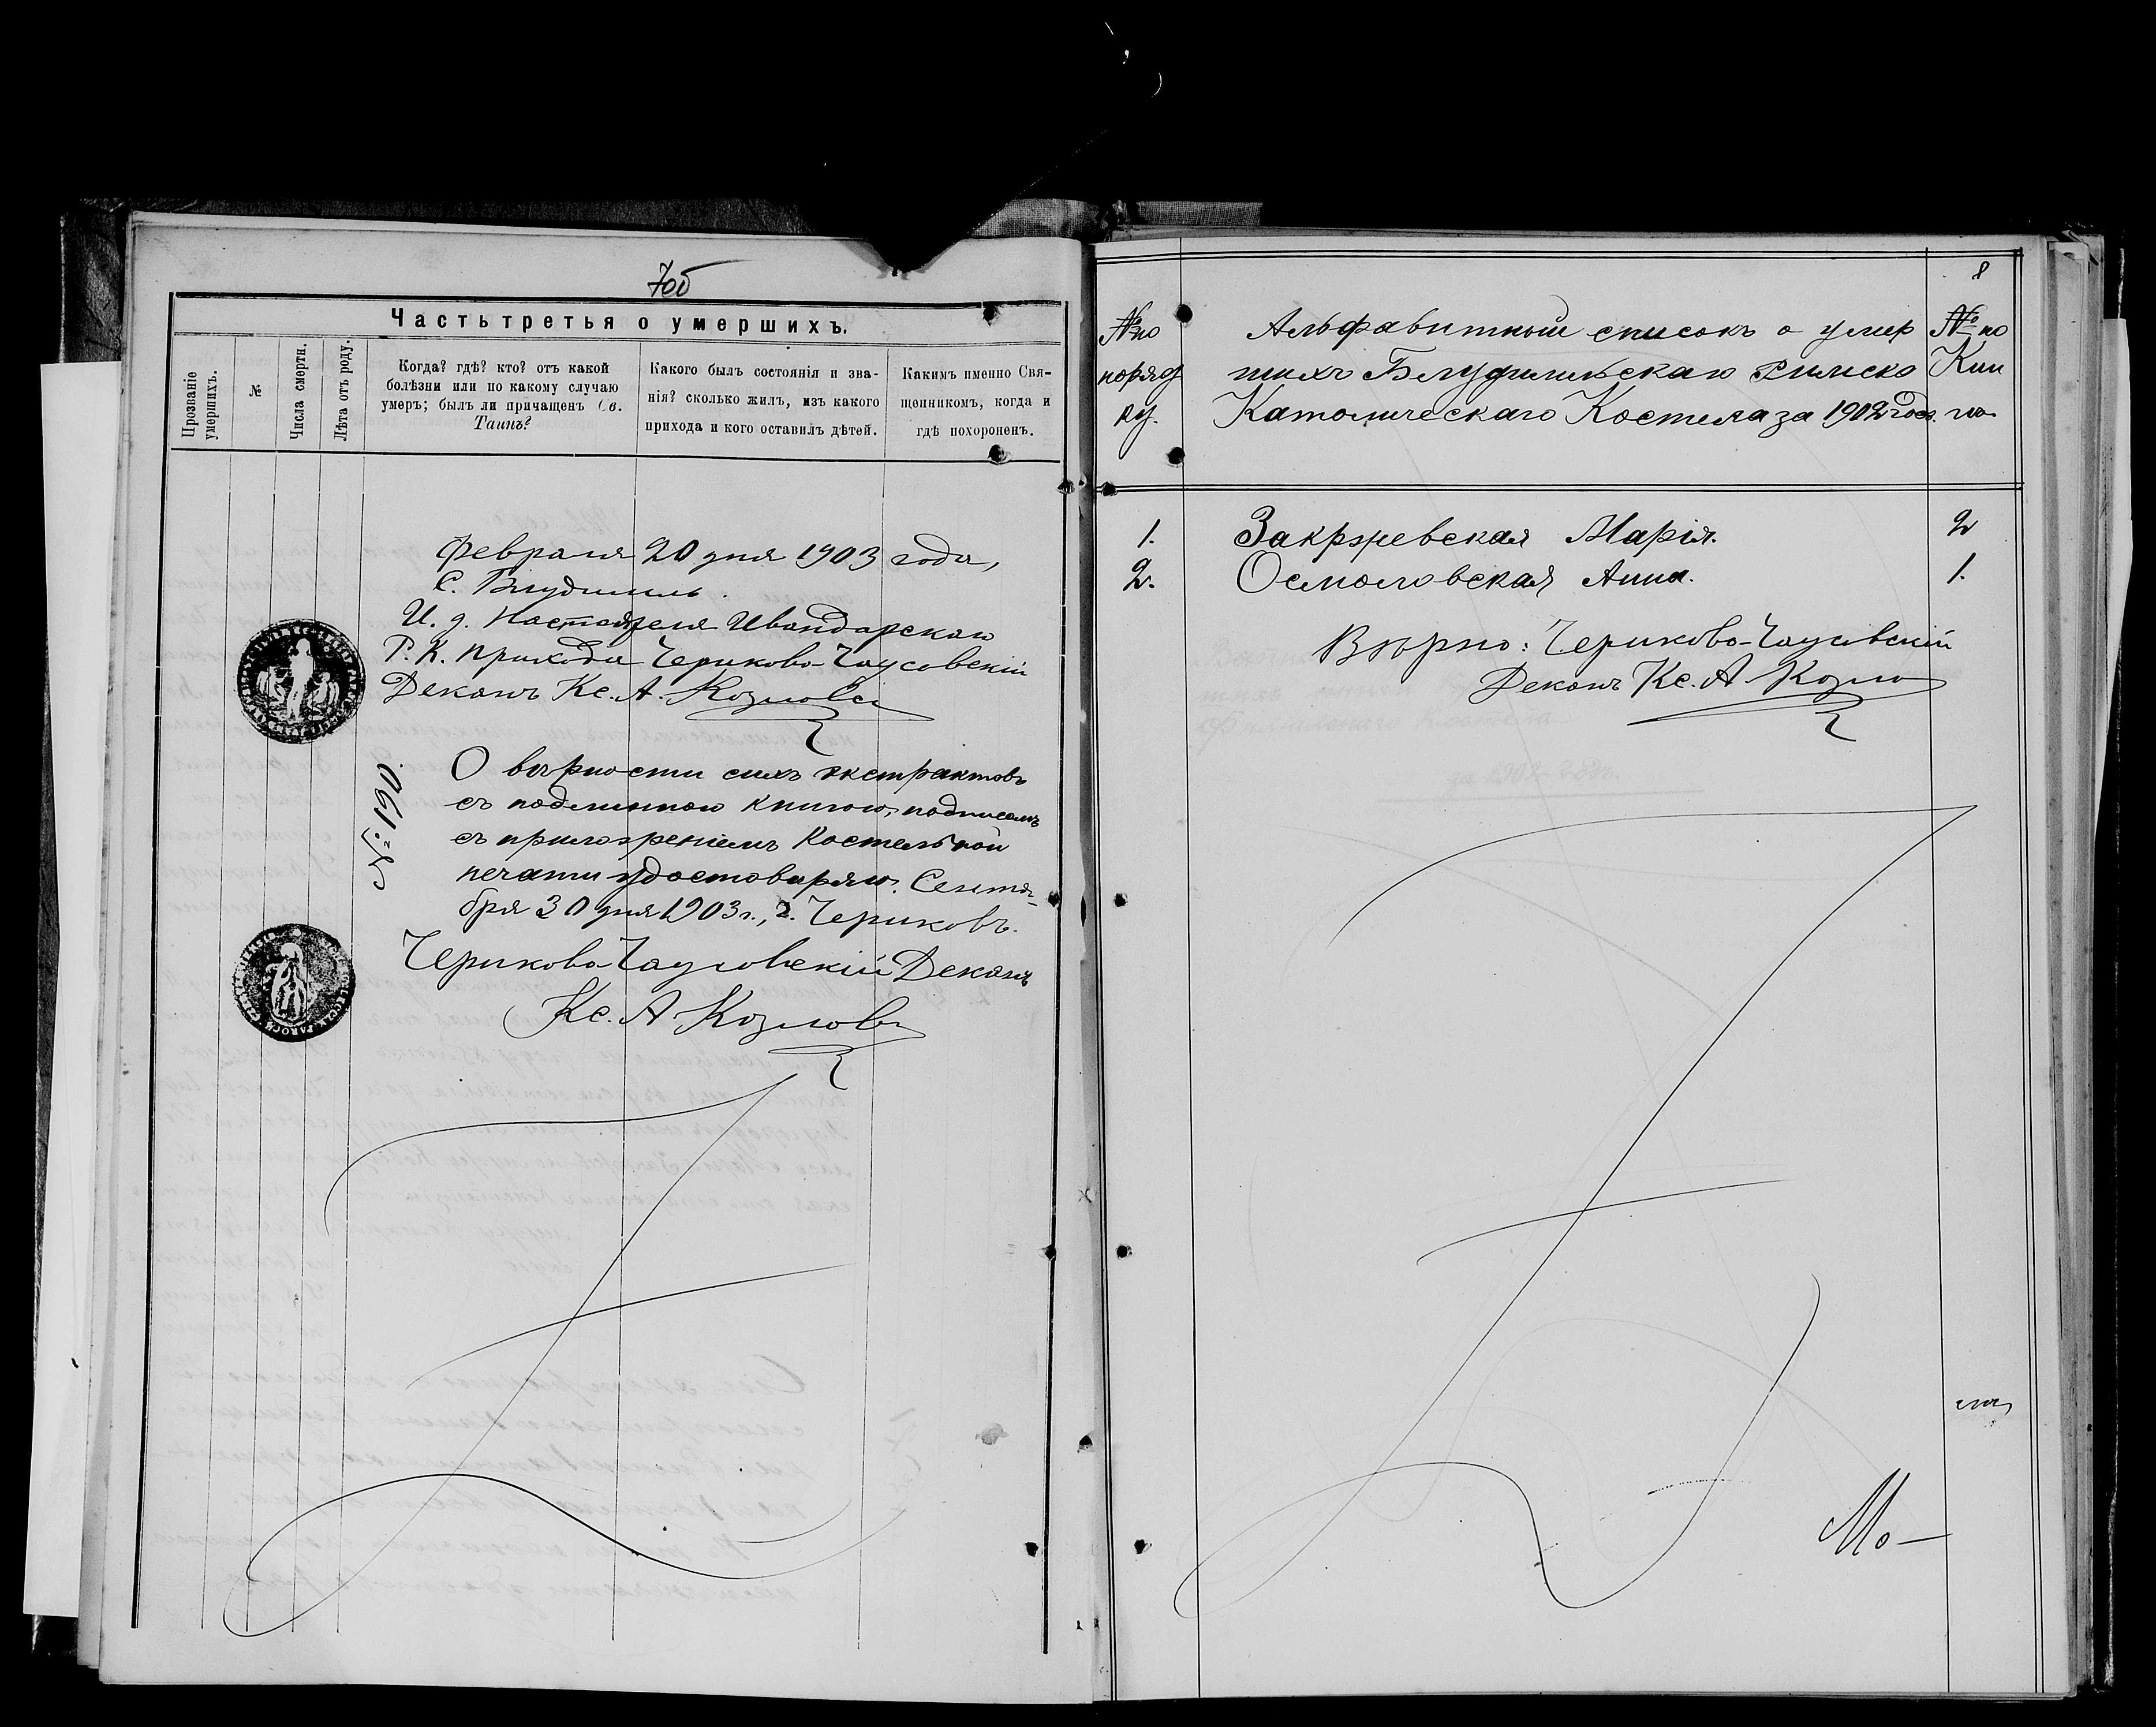 7об
Часть третья о умершихъ.
Прозваніе умершихъ.
№
Числа смерти.
Лѣта отъ роду.
Когда? гдѣ? кто? отъ какой
болѣзни или по какому случаю
умеръ; былъ ли причащенъ Св.
Таинъ?
Какого былъ состоянія и зва-
нія? сколько жилъ, изъ какого
прихода и кого оставилъ дѣтей.
Какимъ именно Свя-
щенникомъ, когда и
гдѣ похороненъ.
Февраля 20 дня 1903 года,
С.
И. д. Настоятеля Ивандарскаго
Р. К. прихода Чериково-Чаусовскій
Деканъ Кс. А. Козловскі
№ 190.
О вѣрности сихъ экстрактовъ
съ подлинною книгою, подписомъ
съ приложеніемъ Костельной
печати удостовѣряю. Сентя-
бря 30 дня 1903 г., г. Чериковъ.
Чериково-Чаусовскій Деканъ
Кс. А Козловс
8
№ по
поряд
ку.
Альфавитный списокъ о умер
шихъ Римско
Католическаго Костела за 1902 годъ.
№ по
Кни
гѣ
1. Закржевская Марія. 2
2. Осмоловская Анна. 1.
Вѣрно: Чериково-Чаусовскій
Деканъ Кс. А Козло
Мо-